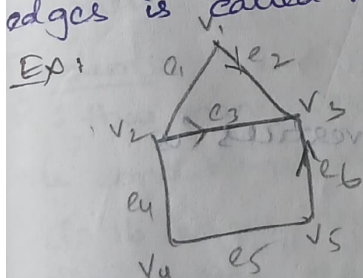 edges is called
Ex:
V1
e1
e2
V2
e3
V3
e4
e6
e5
V4
V5